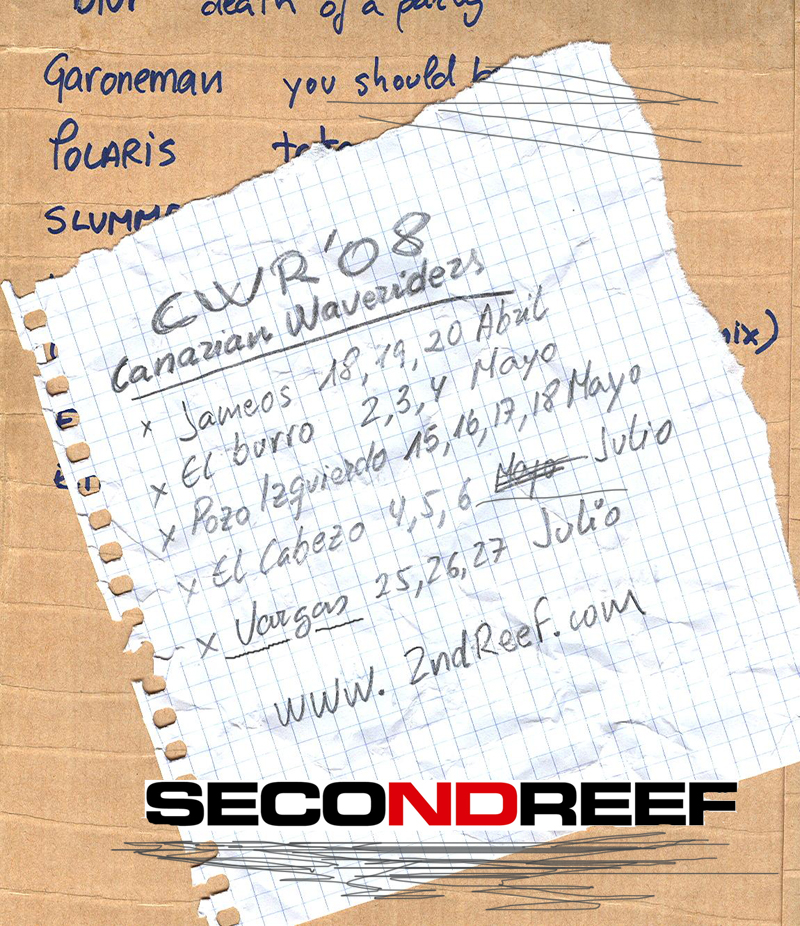 blur death of a party
Garoneman you should b
POLARIS
SLUMM
CWR'08
Canarian Waveriders
x Jameos 18, 19, 20 Abril
x El burro 2, 3, 4 Mayo
x Pozo Izquierdo 15, 16, 17, 18 Mayo
x El Cabezo 4, 5, 6 Mayo Julio
x Vargas 25, 26, 27 Julio
www. 2ndReef.com
mix)
SECONDREEF